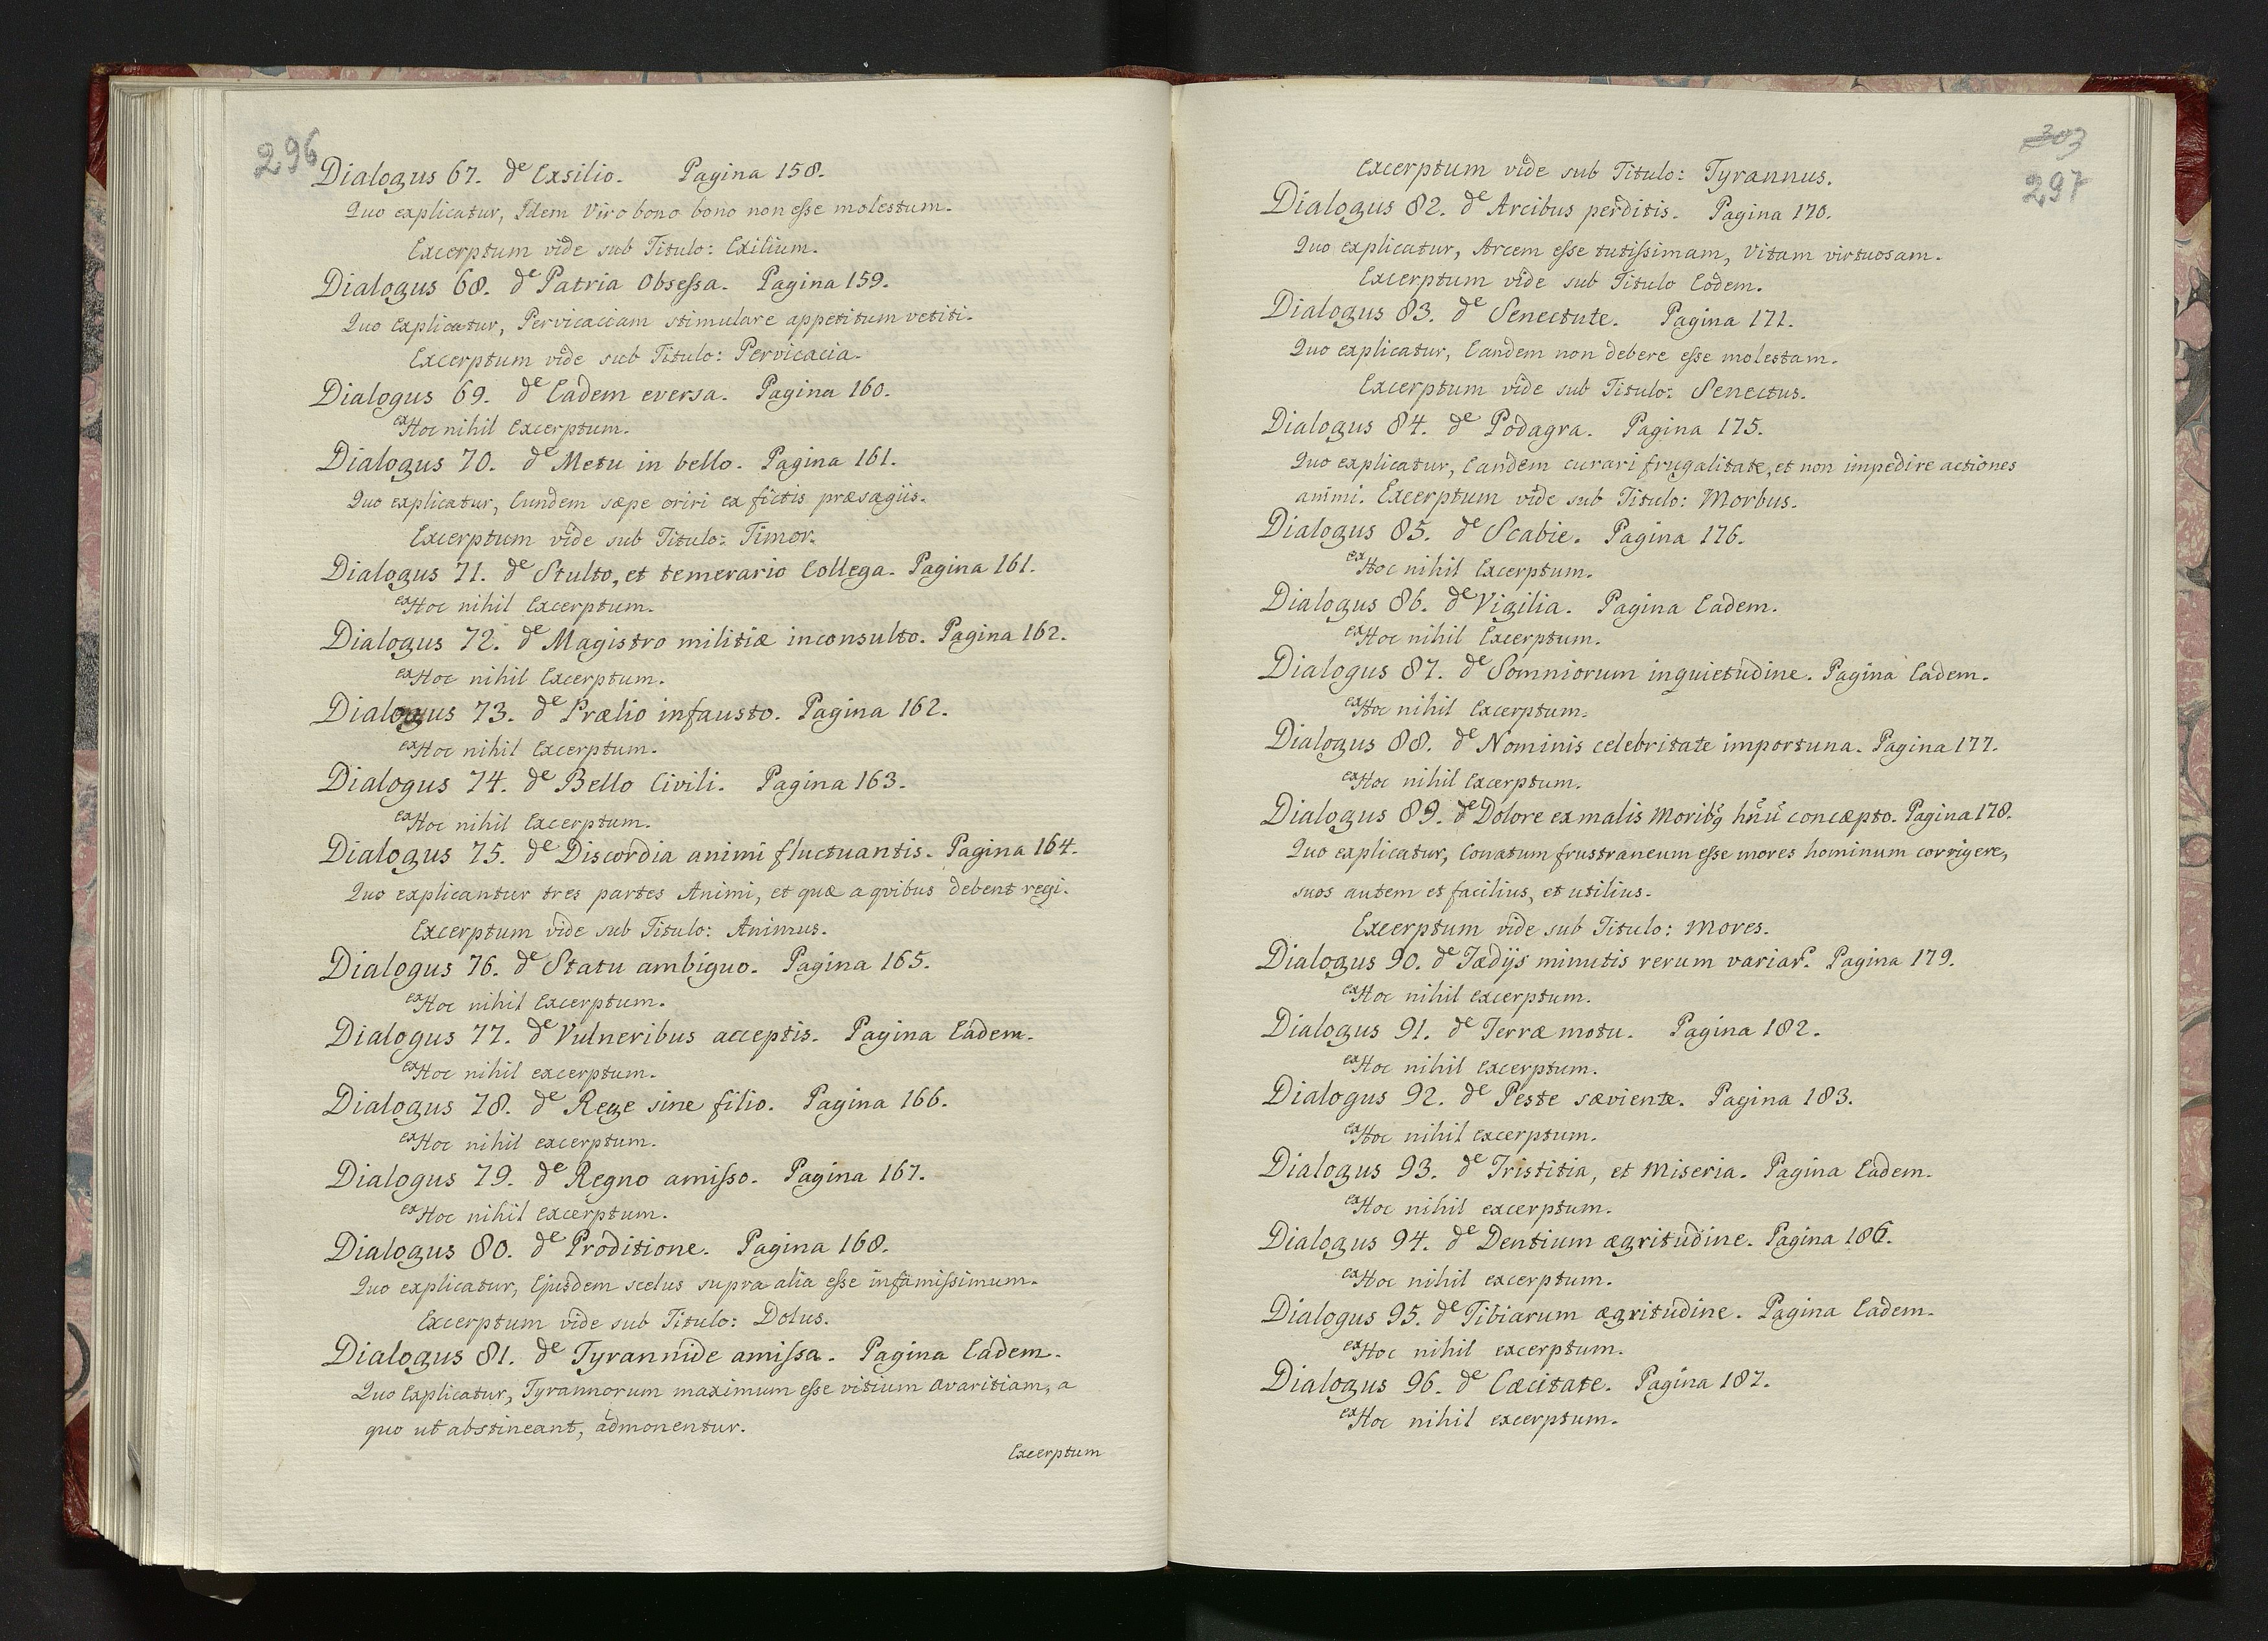 296
Dialogus 67. de Exsilio. Pagina 158.
Quo explicatur, Idem Viro bono bono non esse molestum.
Excerptum vide sub Titulo: Exilium.
Dialogus 68. de Patria Obsessa. Pagina 159.
Quo explicatur, Pervicaciam stimulare appetitum vetiti.
Excerptum vide sub Titulo: Pervicacia.
Dialogus 69. de Eadem eversa. Pagina 160.
ex Hoc nihil Excerptum.
Dialogus 70. de Metu in bello. Pagina 161.
Quo explicatur, Eundem sæpe oriri ex fictis præsagiis.
Excerptum vide sub Titulo: Timor.
Dialogus 71. de Stulto, et temerario Collega. Pagina 161.
ex Hoc nihil Excerptum.
Dialogus 72. de Magistro militiæ inconsulto. Pagina 162.
ex Hoc nihil Excerptum.
Dialogus 73. de Prælio infausto. Pagina 162.
ex Hoc nihil Excerptum.
Dialogus 74. de Bello Civili. Pagina 163.
ex Hoc nihil Excerptum.
Dialogus 75. de Discordia animi fluctuantis. Pagina 164.
Quo explicantur tres partes Animi, et quæ a qvibus debent regi.
Excerptum vide sub Titulo: Animus.
Dialogus 76. de Statu ambiguo. Pagina 165.
ex Hoc nihil Excerptum.
Dialogus 77. de Vulneribus acceptis. Pagina Eadem.
ex Hoc nihil excerptum.
Dialogus 78. de Rege sine filio. Pagina 166.
ex Hoc nihil excerptum.
Dialogus 79. de Regno amisso. Pagina 167.
ex Hoc nihil Excerptum.
Dialogus 80. de Proditione. Pagina 168.
Quo explicatur, Ejusdem scelus supra alia esse infamissimum.
Excerptum vide sub Titulo: Dolus.
Dialogus 81. de Tyrannide amissa. Pagina Eadem.
Quo Explicatur, Tyrannorum maximum esse vitium Avaritiam, a
quo ut abstineant, admonentur.
Excerptum
303
297
Excerptum vide sub Titulo: Tyrannus.
Dialogus 82. de Arcibus perditis. Pagina 170.
Quo explicatur, Arcem esse tutissimam, Vitam virtuosam.
Excerptum vide sub Titulo Eodem.
Dialogus 83. de Senectute. Pagina 171.
Quo explicatur, Eandem non debere esse molestam.
Excerptum vide sub Titulo: Senectus.
Dialogus 84. de Podagra. Pagina 175.
Quo explicatur, Eandem curari frugalitate, et non impedire actiones
animi. Excerptum vide sub Titulo: Morbus.
Dialogus 85. de Scabie. Pagina 176.
ex Hoc nihil Excerptum.
Dialogus 86. de Vigilia. Pagina Eadem.
ex Hoc nihil Excerptum.
Dialogus 87. de Somniorum inquietudine. Pagina Eadem.
ex Hoc nihil Excerptum.
Dialogus 88. de Nominis celebritate importuna. Pagina 177.
ex Hoc nihil Excerptum.
Dialogus 89. de Dolore ex malis Moribq hñũ concæpto. Pagina 178.
Quo explicatur, Conatum frustraneum esse mores hominum corrigere,
suos autem et facilius, et utilius.
Excerptum vide sub Titulo: Mores.
Dialogus 90. de Tædijs minutis rerum variar. Pagina 179.
ex Hoc nihil excerptum.
Dialogus 91. de Terræ motu. Pagina 182.
ex Hoc nihil Excerptum.
Dialogus 92. de Peste sæviente. Pagina 183.
ex Hoc nihil excerptum.
Dialogus 93. de Tristitia, et Miseria. Pagina Eadem.
ex Hoc nihil excerptum.
Dialogus 94. de Dentium ægritudine. Pagina 186.
ex Hoc nihil excerptum.
Dialogus 95. de Tibiarum ægritudine. Pagina Eadem.
ex Hoc nihil excerptum.
Dialogus 96. de Cæcitate. Pagina 187.
ex Hoc nihil excerptum.